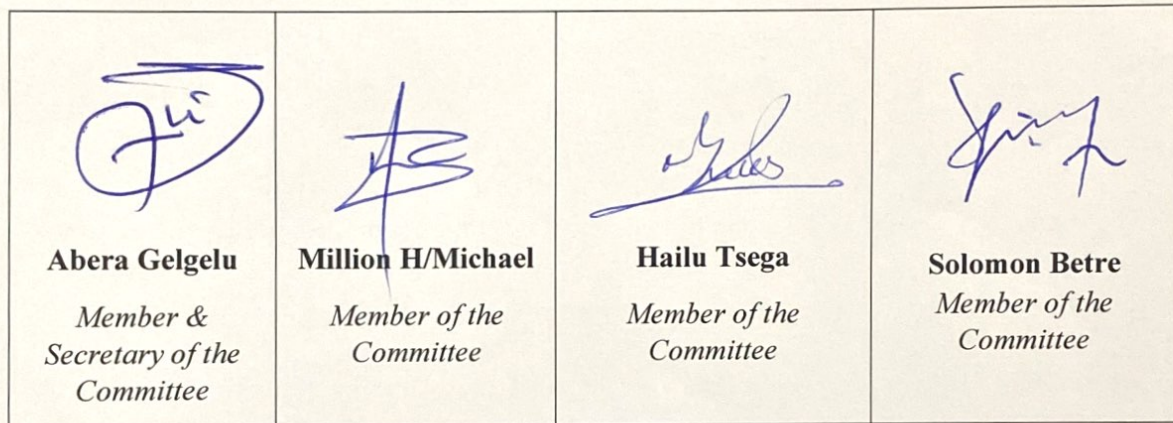 Abera Gelgelu
Member &
Secretary of the
Committee
Million H/Michael
Member of the
Committee
Hailu Tsega
Member of the
Committee
Solomon Betre
Member of the
Committee